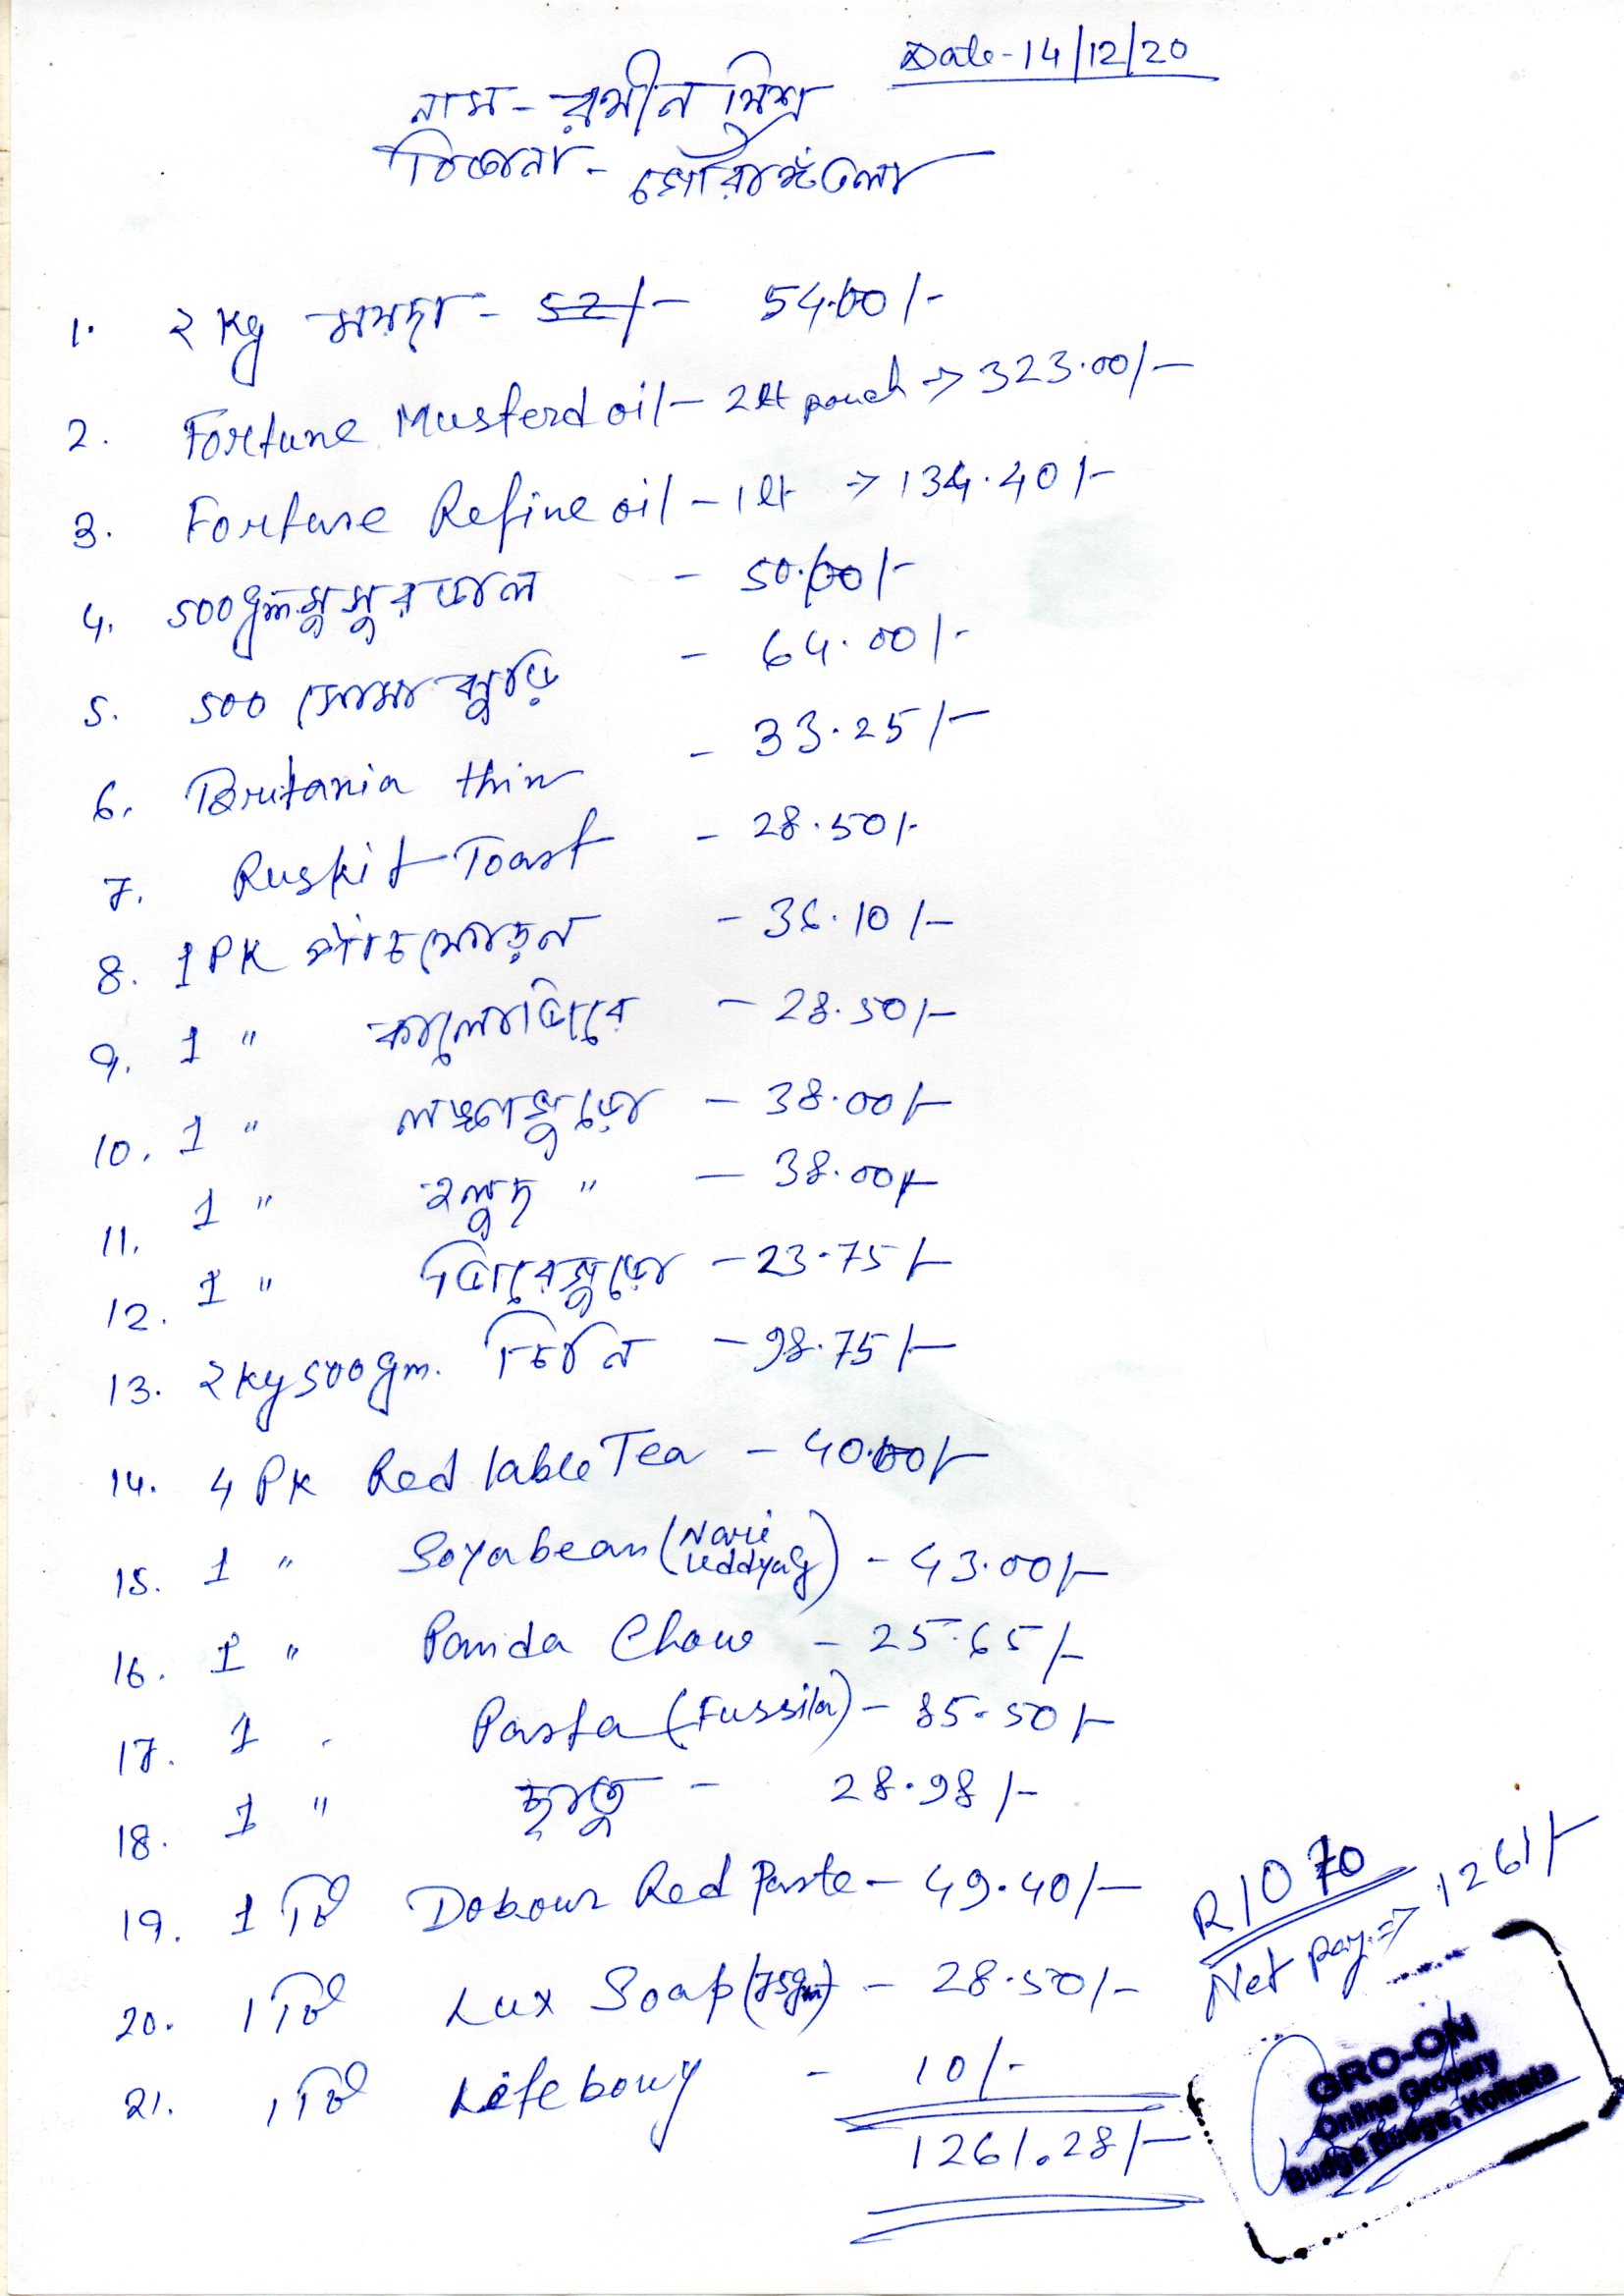 Date - 14/12/20
নাম - রথীন মিশ্র
ঠিকানা -
1. 2 Kg ময়দা - 52/- 54.00/-
2. Fortune Musterd oil - 2 lt pouch → 323.00/-
3. Fortune Refine oil - 1 lt → 134.40/-
4. 500gm মুসুর ডাল - 50.00/-
5. 500 সোনা - 64.00/-
6. Britania thin - 33.25/-
7. Ruskit Toast - 28.50/-
8. 1 PK পাঁচফোড়ন - 36.10/-
9. 1 " কালোজিরে - 28.50/-
10. 1 " লঙ্কাগুড়ো - 38.00/-
11. 1 " হলুদ " - 38.00/-
12. 1 " জিরেগুড়ো - 23.75/-
13. 2 Kg 500gm. চিনি - 98.75/-
14. 4 PK Red lable Tea - 40.00/-
15. 1 " Soyabean (Nari Uddyag) - 43.00/-
16. 1 " Panda Chow - 25.65/-
17. 1 " Pasta (Fussila) - 85.50/-
18. 1 " ছাতু - 28.98/-
19. 1 টি Dobour Red Paste - 49.40/-
20. 1 টি Lux Soap (75gm) - 28.50/-
21. 1 টি Lifebouy - 10/-
1261.28/-
R1070
Net pay ⇒ 1261/-
GRO-ON
Online Grocery
Budge Budge, Kolkata